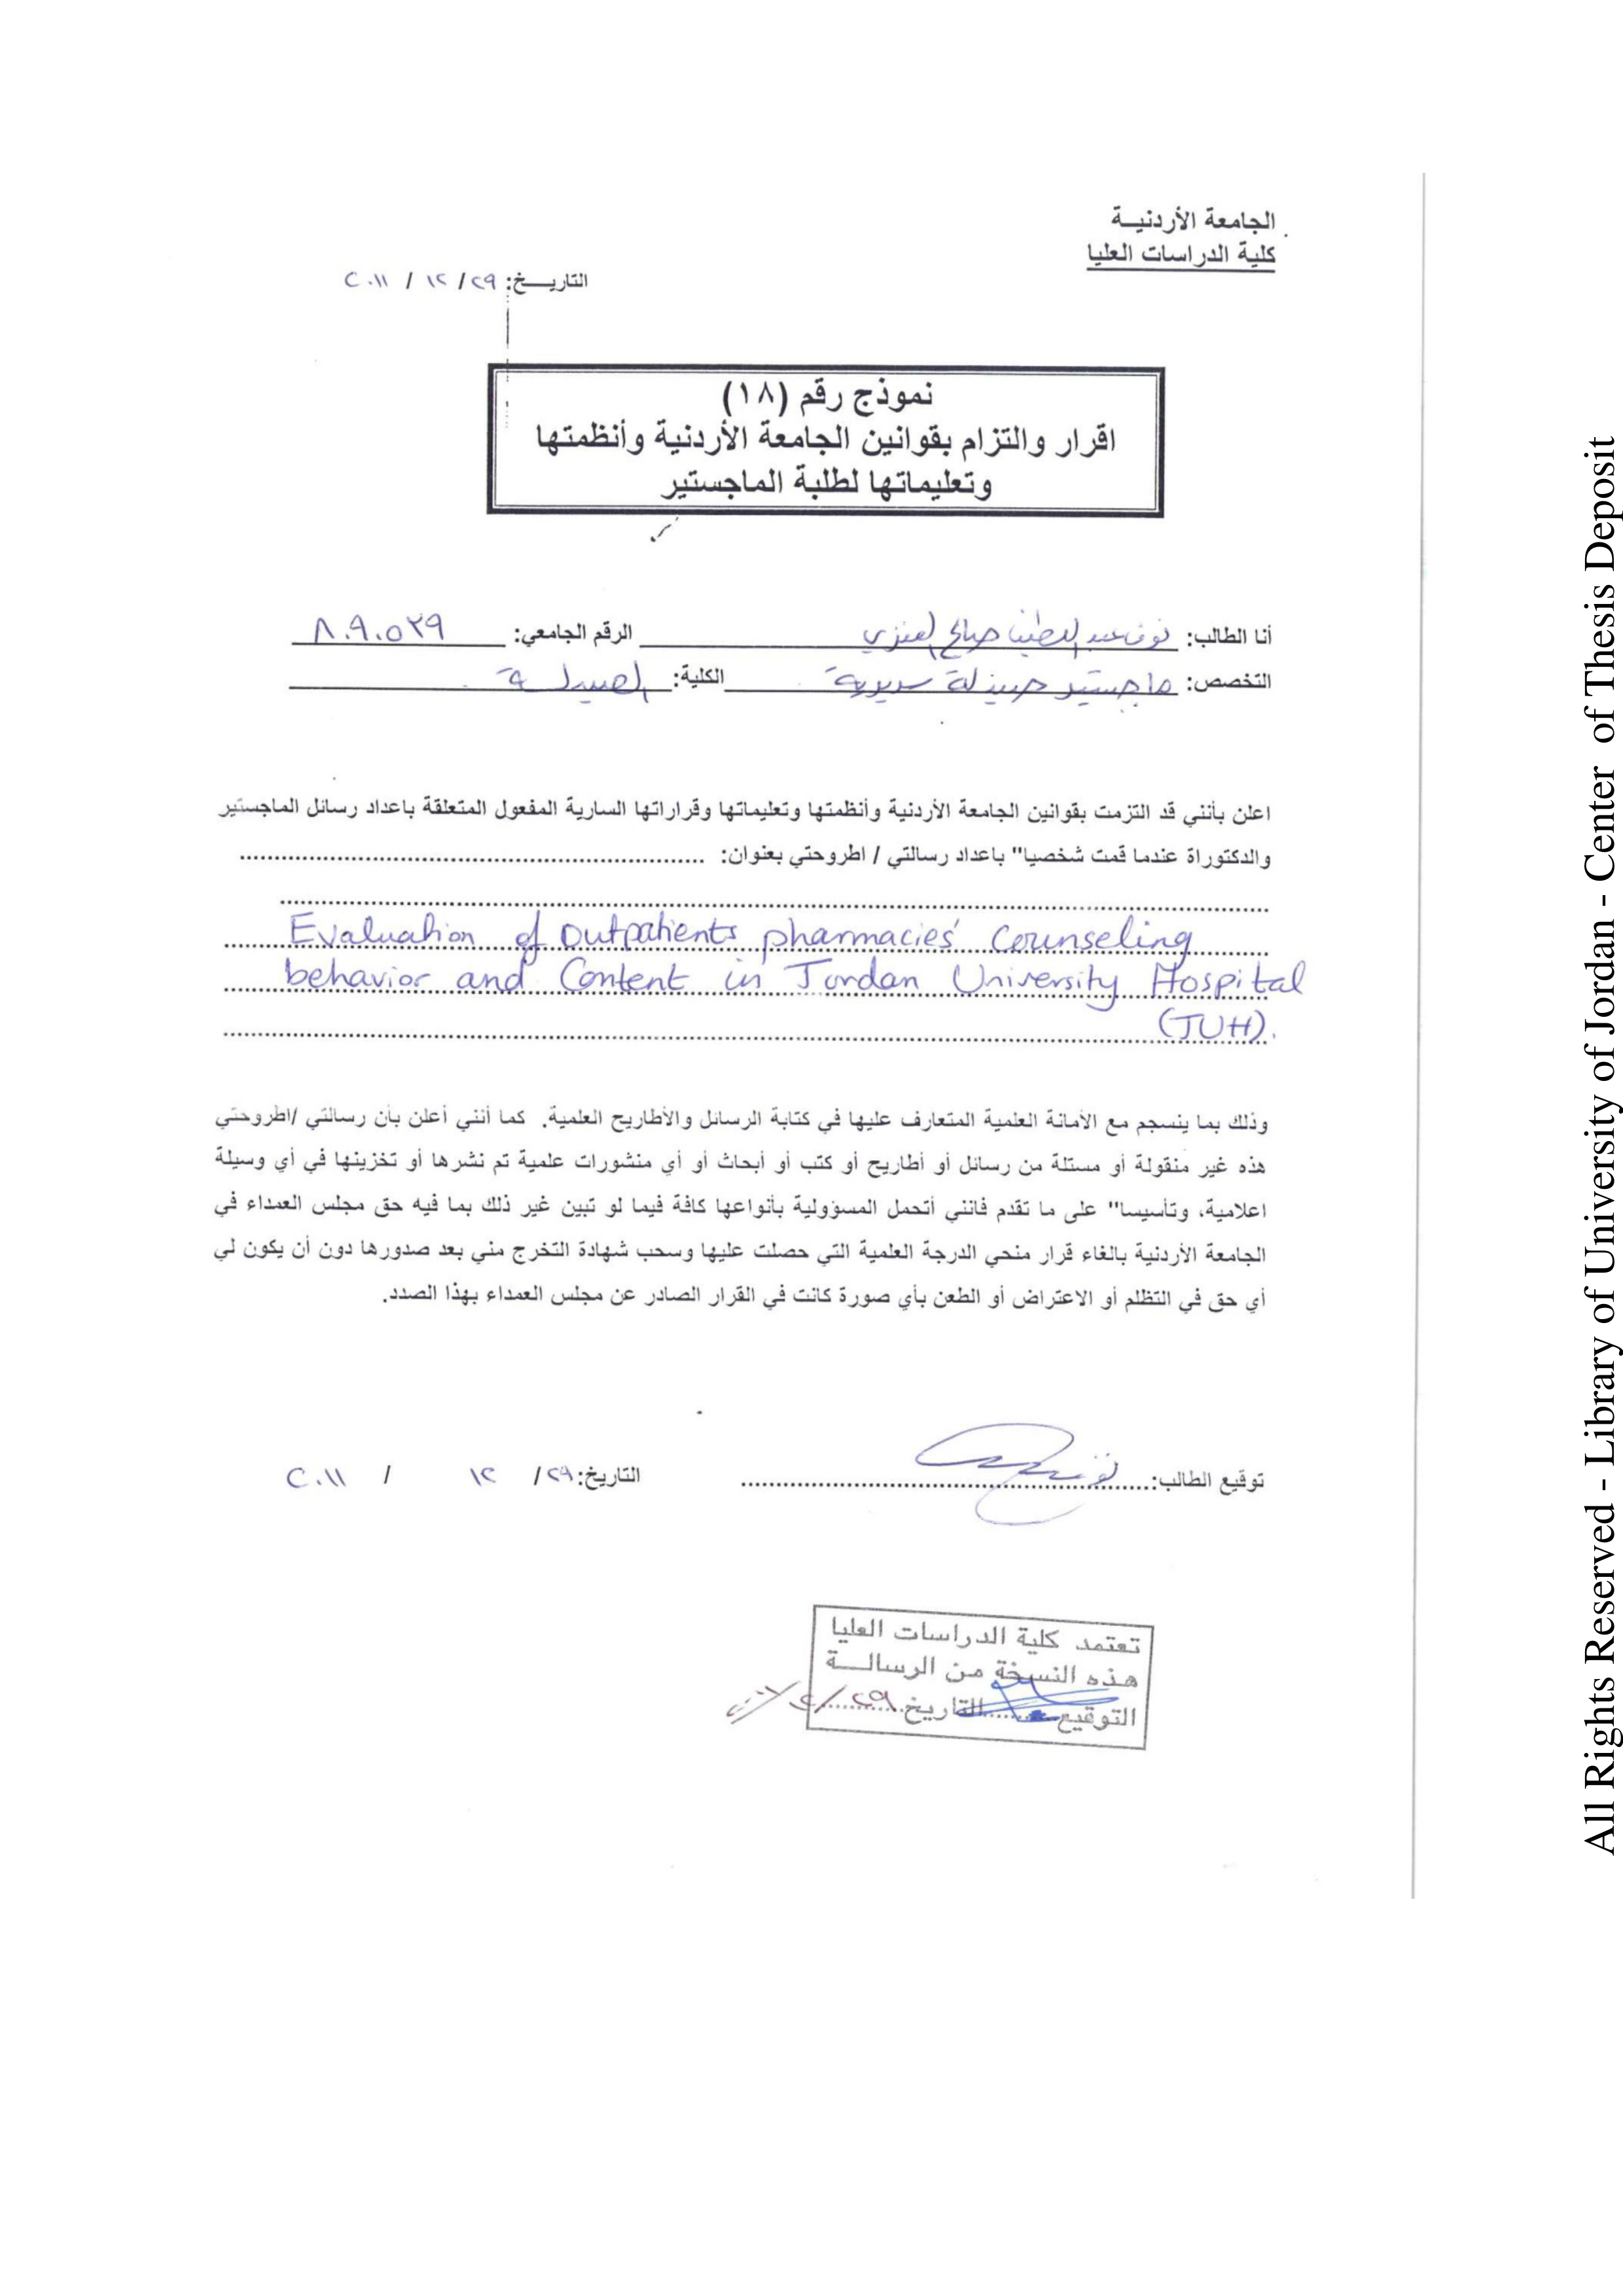 الجامعة الأردنيــة
كلية الدراسات العليا
التاريــخ: ٢٩/ ١٢ / ٢٠١١
نموذج رقم (١٨)
اقرار والتزام بقوانين الجامعة الأردنية وأنظمتها
وتعليماتها لطلبة الماجستير
أنا الطالب: نوف عبد صالح العنزي الرقم الجامعي: ٨٠٩٠٥٣٩
التخصص: ماجستير صيدلة سريرية الكلية: الصيدلة
اعلن بأنني قد التزمت بقوانين الجامعة الأردنية وأنظمتها وتعليماتها وقراراتها السارية المفعول المتعلقة باعداد رسائل الماجستير
والدكتوراة عندما قمت شخصيا" باعداد رسالتي / اطروحتي بعنوان:
Evaluation of Outpatients pharmacies' Counseling
behavior and Content in Jordan University Hospital
(JUH).
وذلك بما ينسجم مع الأمانة العلمية المتعارف عليها في كتابة الرسائل والأطاريح العلمية. كما أنني أعلن بأن رسالتي /اطروحتي
هذه غير منقولة أو مستلة من رسائل أو أطاريح أو كتب أو أبحاث أو أي منشورات علمية تم نشرها أو تخزينها في أي وسيلة
اعلامية، وتأسيسا" على ما تقدم فانني أتحمل المسؤولية بأنواعها كافة فيما لو تبين غير ذلك بما فيه حق مجلس العمداء في
الجامعة الأردنية بالغاء قرار منحي الدرجة العلمية التي حصلت عليها وسحب شهادة التخرج مني بعد صدورها دون أن يكون لي
أي حق في التظلم أو الاعتراض أو الطعن بأي صورة كانت في القرار الصادر عن مجلس العمداء بهذا الصدد.
توقيع الطالب: التاريخ: ٢٩/ ١٢ / ٢٠١١
تعتمد كلية الدراسات العليا
هذه النسخة من الرسالــة
التوقيع التاريخ ٢٩
All Rights Reserved - Library of University of Jordan - Center of Thesis Deposit